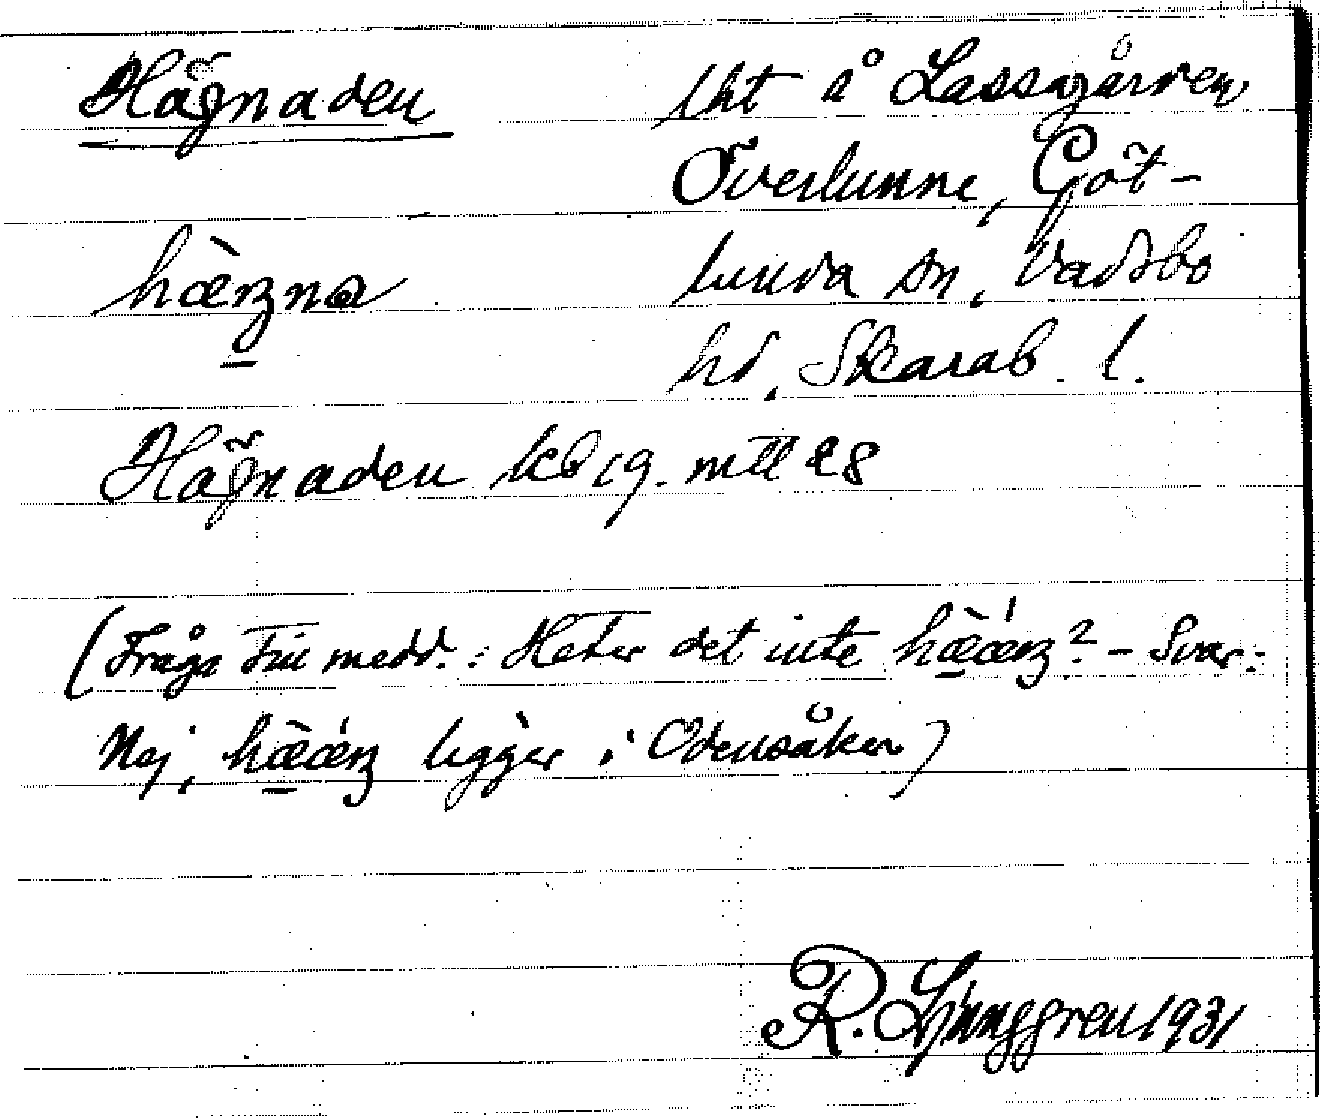 Hägnaden
lht å Lassagården
Överlunne, Göt-
hæŋna
lunda sn, Vadsbo
hd, Skarab. l.
Hägnaden kb 19. mtl 28
(Fråga till medd.: Heter det inte hææŋ? - Svar:
Nej, hææŋ ligger i Odensåker)
R. Ljunggren 1931